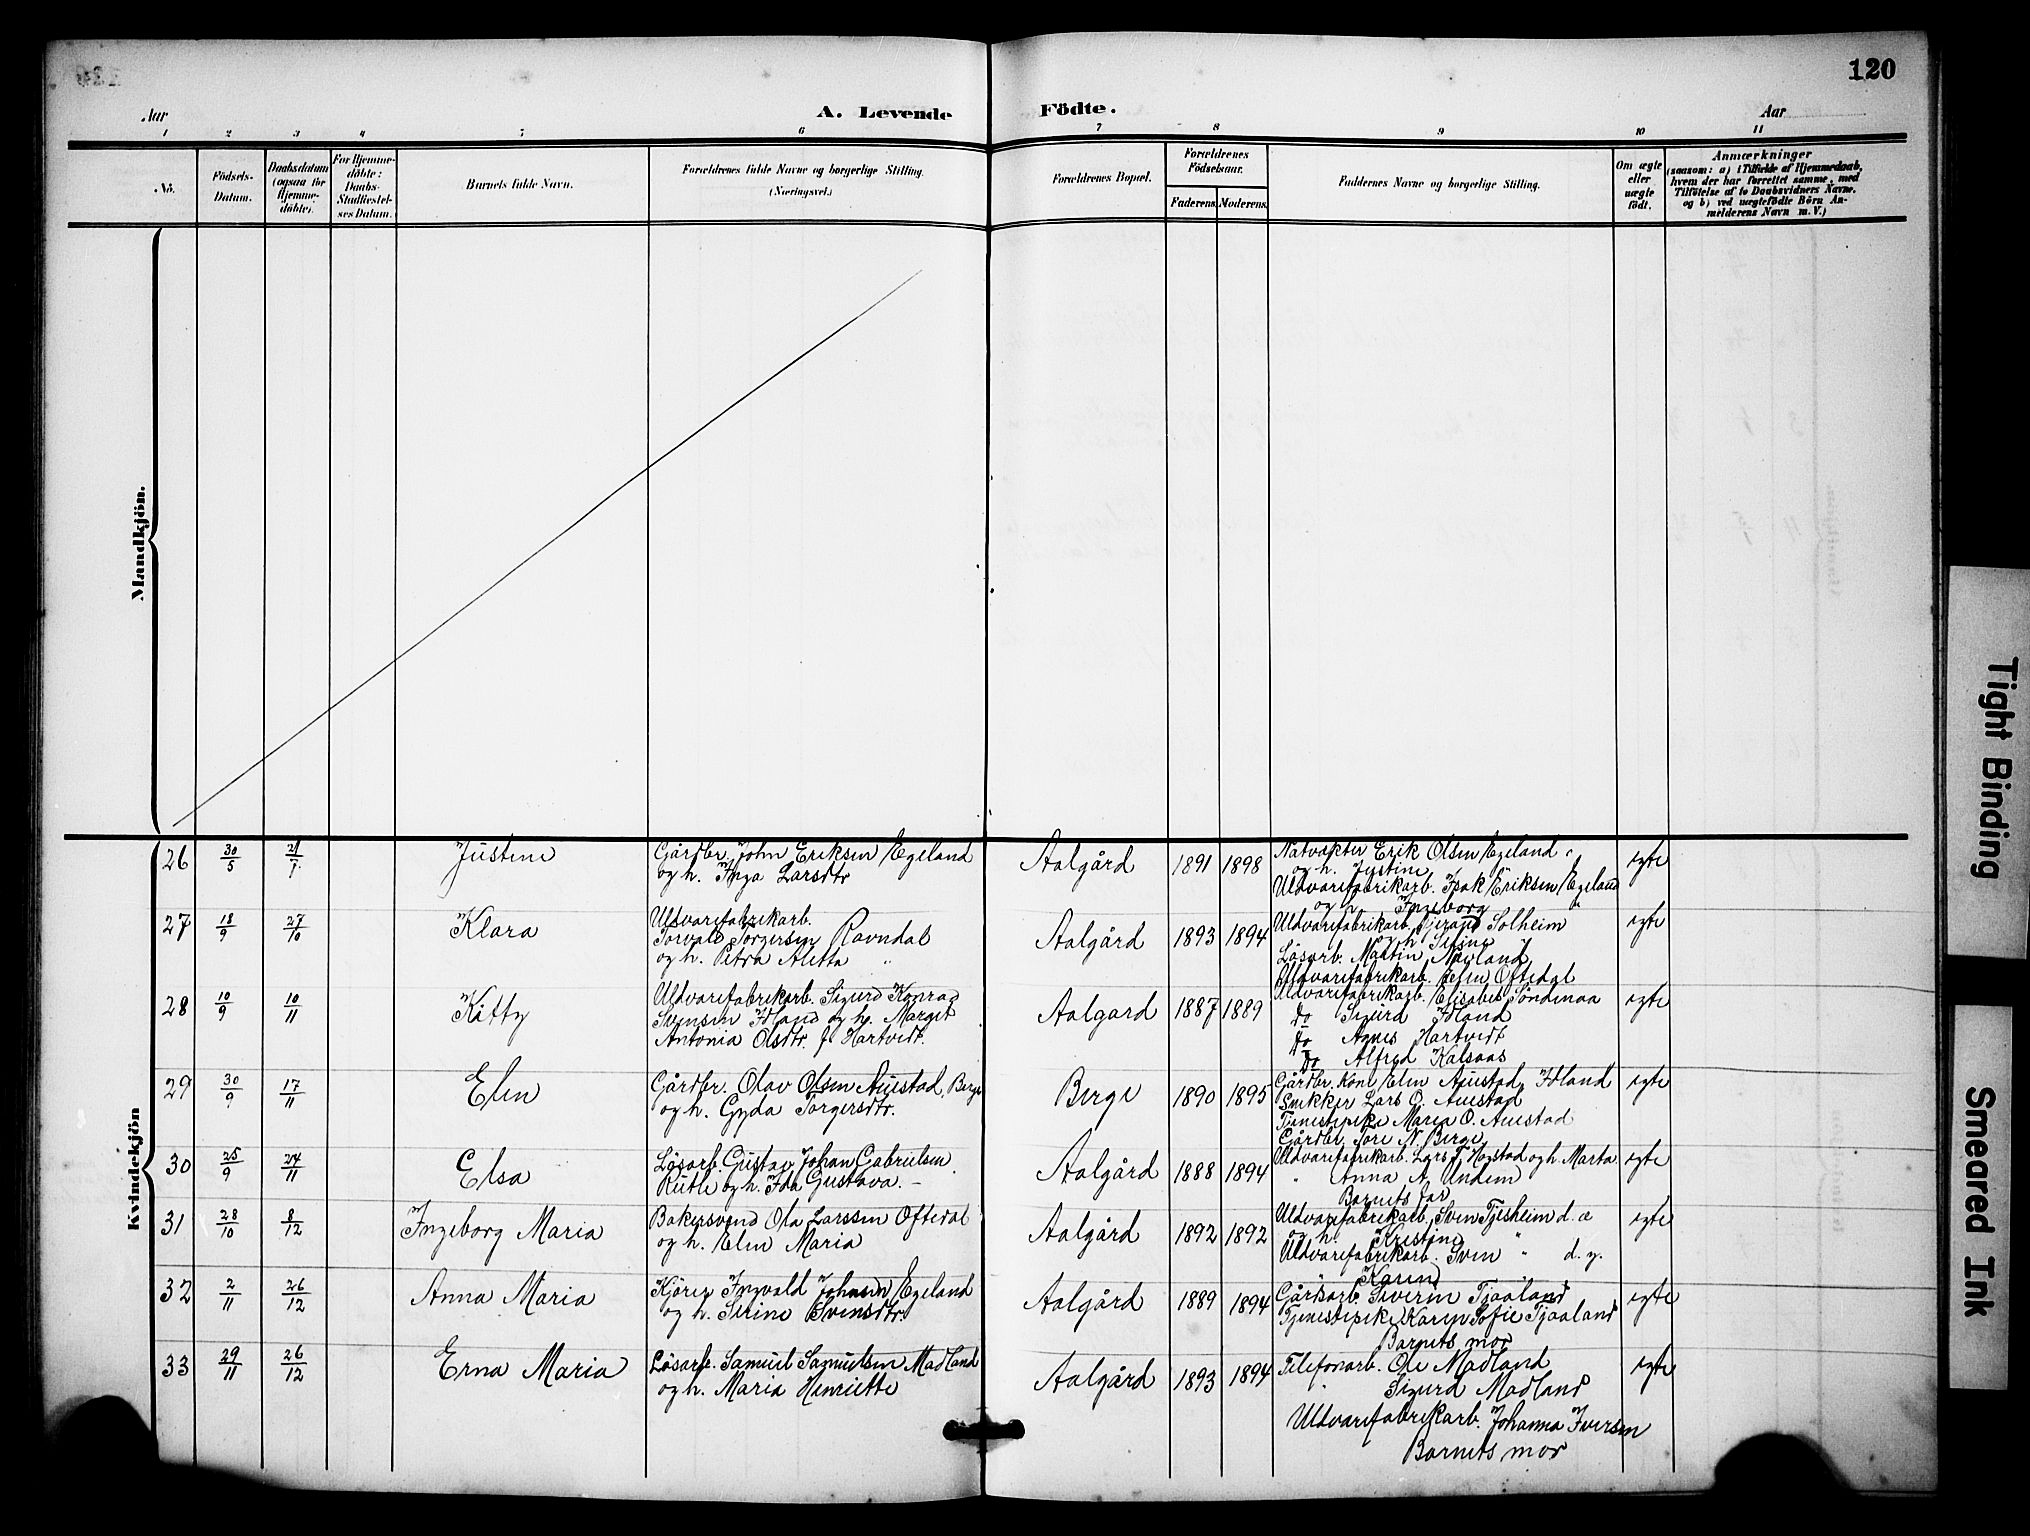 120
Aar
A. Levende Födte.
Aar
1 2 3 4 5 6 7 8 9 10 11
No.
Födsels-Datum.
Daabsdatum (ogsaa for Hjemme-döbte).
For Hjemme-döbte: Daabs-Stadfæstel-ses Datum.
Barnets fulde Navn.
Forældrenes fulde Navne og borgerlige Stilling.
(Næringsvei.)
Forældrenes Bopæl.
Forældrenes Födselsaar.
Faderens. Moderens.
Faddernes Navne og borgerlige Stilling.
Om ægte eller uægte födt.
Anmærkninger
(saasom: a) i Tilfælde af Hjemmedaab,
hvem der har forrettet samme, med
Tilföielse af to Daabsvidners Navne.
og b) ved uægtefödte Börn An-
melderens Navn m. V.)
Mandkjön.
Kvindekjön
26 30/5 21/7 Justine
Gårdbr. John Eriksen Egeland
og h. Inga Larsdtr
Aalgård 1891 1898
Natvakter Erik Olsen Egeland
og h. Justine
Uldvarefabrikarb. Isak Eriksen Egeland
og h. Ingeborg
egte
27 18/9 27/10 Klara
Uldvarefabrikarb.
Torvald Torgersen Ravndal
og h. Petra Aletta "
Aalgård 1893 1894
Uldvarefabrikarb. Solheim
og h.
Lösarb. Martin
Uldvarefabrikarb. Elen Oftedal
egte
28 10/9 10/11 Kitty
Uldvarefabrikarb. Sigurd Konrad
Svensen Idland og h. Margit
Antonia Olsdtr. f. Hartvedt.
Aalgard 1887 1889
Uldvarefabrikarb. Elisabet Söndenaa
Do Sigurd Idland
Do Agnes Hartvedt
Do Alfred Kalsaas
egte
29 30/9 17/11 Elen
Gårdbr. Olav Olsen Auestad, Berge
og h. Gyda Torgersdtr.
Berge 1890 1895
Gårdbr. Kone Elen Auestad, Idland
Snikker Lars O. Auestad
Tjenestepike Maria O. Auestad
Gårdbr. Tore N. Berge
egte
30 25/9 24/11 Elsa
Lösarb. Gustav Johan Gabrielsen
Rutle og h. Ida Gustava. —
Aalgård 1888 1894
Uldvarefabrikarb. Lars T. Hogstad og h. Marta
" Anna A. Undem
Barnets far
egte
31 28/10 8/12 Ingeborg Maria
Bakersvend Ola Larssen Oftedal
og h. Elen Maria
Aalgård 1892 1892
Uldvarefabrikarb. Sven Tjesheim d. æ
og h. Kristine
Uldvarefabrikarb. Sven " d. y.
Karen
egte
32 2/11 26/12 Anna Maria
Kjörer Ingvald Johnsen Egeland
og h. Serine Svensdtr.
Aalgård 1889 1894
Gårdarb. Severin Tjaaland
Tjenestepike Karen Sofie Tjaaland
Barnets mor
egte
33 29/11 26/12 Erna Maria
Lösarb. Samuel Samuelsen Madland
og h. Maria Henriette
Aalgård 1893 1894
Telefonarb. Ole Madland
" Sigurd Madland
Uldvarefabrikarb. Johanna Iversen
Barnets mor
egte
Tight Binding
Smeared Ink